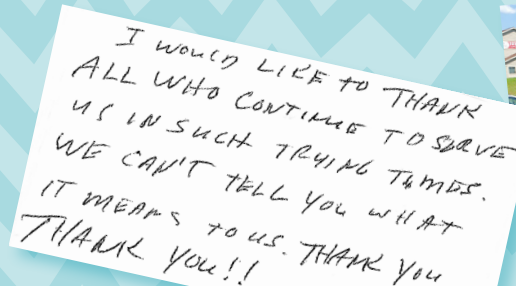 I WOULD LIKE TO THANK
ALL WHO CONTINUE TO SERVE
US IN SUCH TRYING TIMES.
WE CAN'T TELL YOU WHAT
IT MEANS TO US. THANK YOU
THANK YOU!!